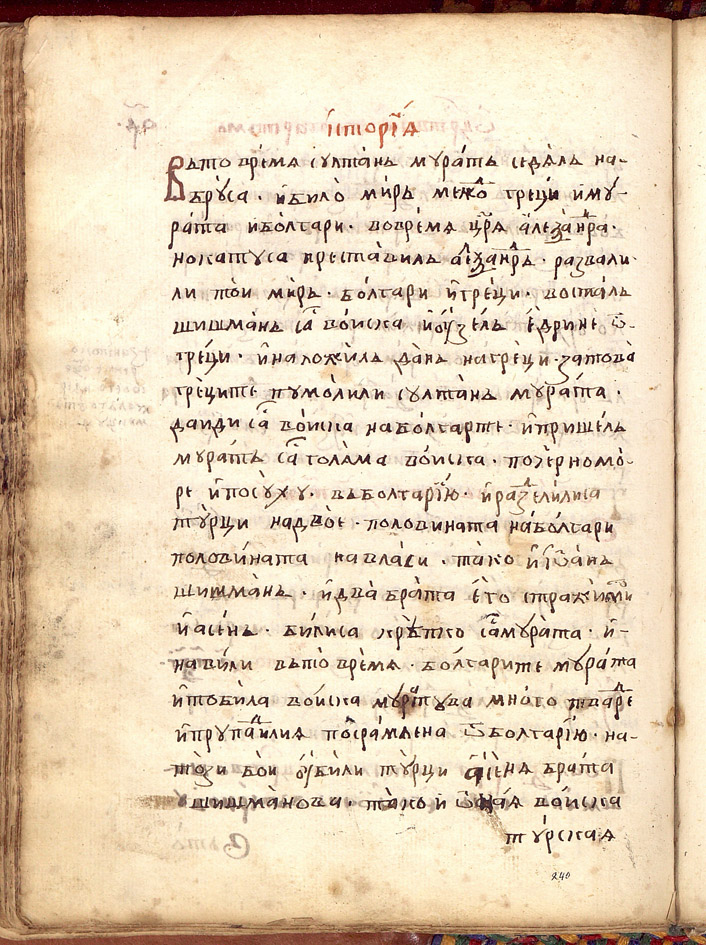 їсторїѧ
Вьто врѐмѧ султа̀нь мура̀ть седѧ̀ль на-
бру̀са · и҆било̀ мѝрь межⷣо гре́ци и҆му-
ра́та и҆бо́лгари · вовре́мѧ цр҃ѧ а҆леза́нⷣра ·
нокатуса преставиль а҆леѯа́нⷣрь · развали-
ли то̀и мѝрь · бо́лгари и҆гре́ци · воста̀ль
шишма́нь саⷭ во́иска и҆ѹ҆зе́ль є҆дрине ѿ-
гре́ци · и҆наложѝль да̀нь нагре́ци · затова̀
гре́ците пумолили султа̀нь мура̀та ·
даиди саⷭ во́иска набо́лгарте · и҆прише́ль
мура̀ть саⷭ гола̀ма во́иска · поче́рномо̀-
ре и҆посу́ху · вьболга́рїю · и҆разⷣели́лиса
ту́рци надво̀е · полови́ната набо́лгари
полови́ната на вла́си · та̀ко и҆ і҆ѡа̀нь
шишма̀нь · и҆два̀ бра̀та є҆го̀ стражими
и҆асе́нь · би́лиса крѣ́пко саⷭмура̀та · и҆-
нави́ли вьто̀ вре́мѧ · бо́лгарите мура́та
и҆побила во́иска муратува мно́го твⷣарⷣе
и҆прупаⷣилиѧ поⷭрамлена ѿболга́рїю · на-
то̀зи бои ѹ҆били ту̀рци а҆се́нѧ бра̀та
шишма̀нова · та̀ко и҆ ѿнаѧ во́иска
ту́рскаѧ
240